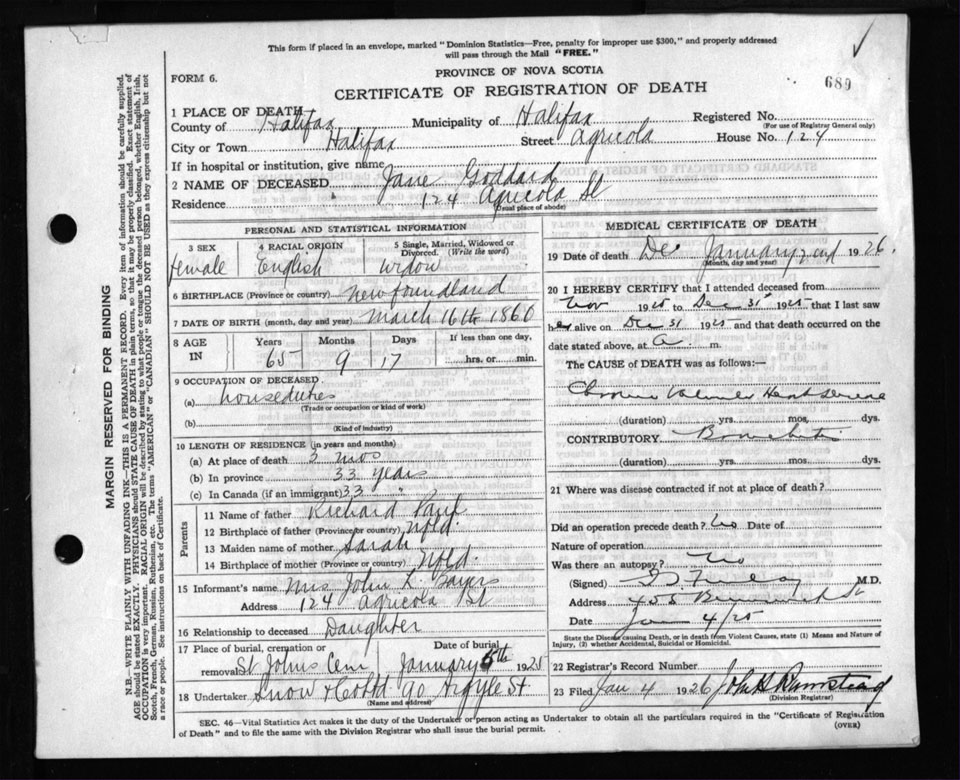 This form if placed in an envelope, marked "Dominion Statistics—Free, penalty for improper use $300," and properly addressed
will pass through the Mail "FREE."
FORM 6.
PROVINCE OF NOVA SCOTIA
689
CERTIFICATE OF REGISTRATION OF DEATH
1 PLACE OF DEATH
County of Halifax Municipality of Halifax Registered No.
(For use of Registrar General only)
City or Town Halifax Street Agricola House No. 124
If in hospital or institution, give name
2 NAME OF DECEASED Jane Goddard
Residence 124 Agricola St
(Usual place of abode)
PERSONAL AND STATISTICAL INFORMATION
3 SEX 4 RACIAL ORIGIN 5 Single, Married, Widowed or Divorced. (Write the word)
female English widow
6 BIRTHPLACE (Province or country) Newfoundland
7 DATE OF BIRTH (month, day and year) March 16th 1860
8 AGE IN Years Months Days If less than one day,
65 9 17 hrs. or min.
9 OCCUPATION OF DECEASED
(a) houseduties
(Trade or occupation or kind of work)
(b)
(Kind of industry)
10 LENGTH OF RESIDENCE (in years and months)
(a) At place of death mos
(b) In province 33 years
(c) In Canada (if an immigrant) 33 "
Parents
11 Name of father Richard
12 Birthplace of father (Province or country) Nfld.
13 Maiden name of mother Sarah
14 Birthplace of mother (Province or country) Nfld.
15 Informant's name Mrs John L. Sayers
Address 124 Agricola St
16 Relationship to deceased Daughter
17 Place of burial, cremation or removal Date of burial
St Johns Cem January 5th 1925
18 Undertaker Snow & Co Ltd 90 Argyle St
(Name and address)
MEDICAL CERTIFICATE OF DEATH
19 Date of death De January 2nd 1926.
(Month, day and year)
20 I HEREBY CERTIFY that I attended deceased from
Nov 1925 to Dec 31st 1925 that I last saw
her alive on Dec 31 1925 and that death occurred on
date stated above, at a. m.
The CAUSE OF DEATH was as follows:—
Chronic Valvular Heart Disease
(duration) yrs. mos. dys.
CONTRIBUTORY Bronchitis
(duration) yrs. mos. dys.
21 Where was disease contracted if not at place of death?
Did an operation precede death? No Date of
Nature of operation
Was there an autopsy? No
(Signed) M.D.
Address St
Date Jan 4/25
State the Disease causing Death, or in death from Violent Causes, state (1) Means and Nature of
Injury, (2) whether Accidental, Suicidal or Homicidal.
22 Registrar's Record Number
23 Filed Jan 4 1926 John
(Division Registrar)
SEC. 46—Vital Statistics Act makes it the duty of the Undertaker or person acting as Undertaker to obtain all the particulars required in the "Certificate of Registration
of Death" and to file the same with the Division Registrar who shall issue the burial permit.
(OVER)
MARGIN RESERVED FOR BINDING
N.B.—WRITE PLAINLY WITH UNFADING INK—THIS IS A PERMANENT RECORD. Every item of information should be carefully supplied.
AGE should be stated EXACTLY. PHYSICIANS should STATE CAUSE OF DEATH in plain terms, so that it may be properly classified. Exact statement of
OCCUPATION is very important. RACIAL ORIGIN will be described by stating to what people or tongue the deceased person belonged, whether English, Irish,
Scotch, French, German, Russian, Ruthenian, etc. The terms "AMERICAN" or "CANADIAN" SHOULD NOT BE USED as they express citizenship but not
a race or people. See instructions on back of Certificate.